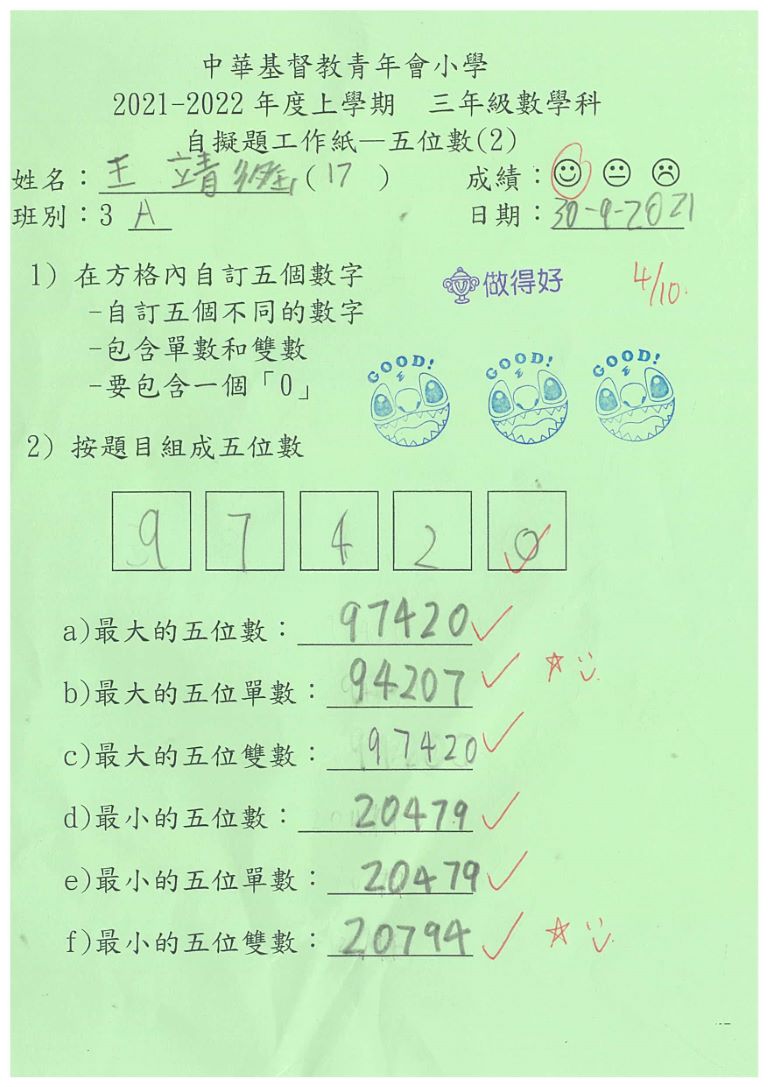 中華基督教青年會小學
2021-2022 年度上學期 三年級數學科
自擬題工作紙—五位數(2)
姓名：王 靖 (17) 成績：
班別：3 A 日期：30-9-2021
1) 在方格內自訂五個數字
做得好 4/10.
-自訂五個不同的數字
-包含單數和雙數
-要包含一個「0」
GOOD! GOOD! GOOD!
2) 按題目組成五位數
9 7 4 2 0
a)最大的五位數：97420
b)最大的五位單數：94207
c)最大的五位雙數：97420
d)最小的五位數：20479
e)最小的五位單數：20479
f)最小的五位雙數：20794